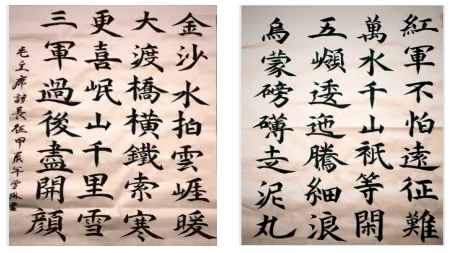 紅軍不怕遠征難
萬水千山祇等閑
五嶺逶迤騰細浪
烏蒙磅礴走泥丸
金沙水拍雲崖暖
大渡橋橫鐵索寒
更喜岷山千里雪
三軍過後盡開顏
毛主席詩長征甲辰年